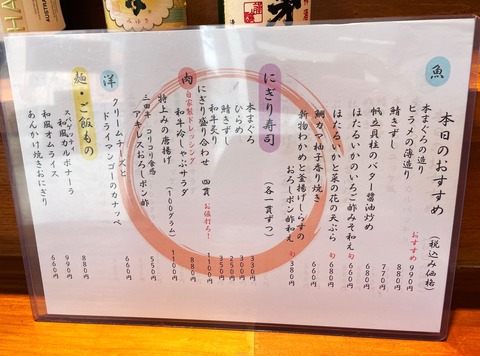 本日のおすすめ (税込み価格)
魚
本まぐろの造り おすすめ 990円
ヒラメの薄造り 880円
鯖きずし 770円
帆立貝柱のバター醤油炒め 880円
ほたるいかのいちご酢みそ和え 旬 660円
ほたるいかと菜の花の天ぷら 旬 680円
鯛カマ柚子香り焼き 660円
新物わかめと釜揚げしらすの
おろしポン酢和え 旬 380円
にぎり寿司 (各一貫ずつ)
本まぐろ 330円
ひらめ 300円
鯖きずし 250円
和牛炙り 350円
にぎり盛り合わせ 四貫 お値打ち! 1100円
肉
自家製ドレッシング
和牛冷しゃぶサラダ 880円
特上ミの唐揚げ (100グラム) 1100円
三田牛 コリコリ食感
アキレスおろしポン酢 550円
洋
クリームチーズと
ドライマンゴーのカナッペ 660円
麺・ご飯もの
スパゲッティ
和風カルボナーラ 880円
和風オムライス 990円
あんかけ焼きおにぎり 660円